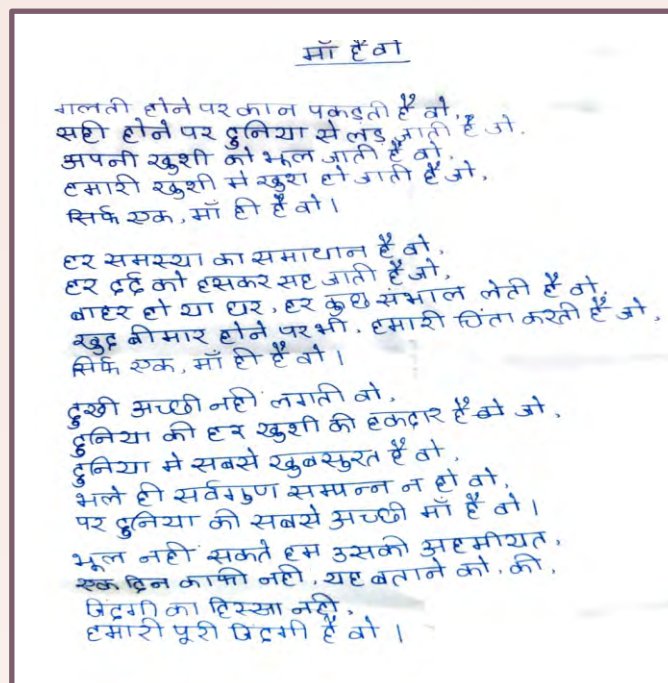 माँ है वो
गलती होने पर कान पकड़ती है वो,
सही होने पर दुनिया से लड़ जाती है जो.
अपनी खुशी को भूल जाती है वो,
हमारी खुशी मे खुश हो जाती है जो,
सिर्फ एक, माँ ही है वो।
हर समस्या का समाधान है वो,
हर दर्द को हसकर सह जाती है जो,
बाहर हो या घर, हर कुछ संभाल लेती है वो,
खुद बीमार होने पर भी, हमारी चिंता करती है जो,
सिर्फ एक, माँ ही है वो।
दुखी अच्छी नही लगती वो,
दुनिया की हर खुशी की हकदार है जो,
दुनिया मे सबसे खुबसुरत है वो,
भले ही सर्वगुण सम्पन्न न हो वो,
पर दुनिया की सबसे अच्छी माँ है वो।
भूल नही सकते हम उसकी अहमीयत,
एक दिन काफी नही, यह बताने को, की,
जिंदगी का हिस्सा नही,
हमारी पूरी जिंदगी है वो।